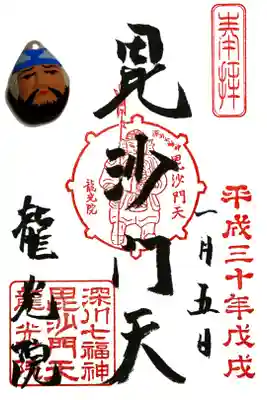 奉拝
平成三十年戊戌
一月五日
毘沙门天
深川七福神
毘沙門天
龍光院
龍光院
深川七福神
毘沙門天
龍光院